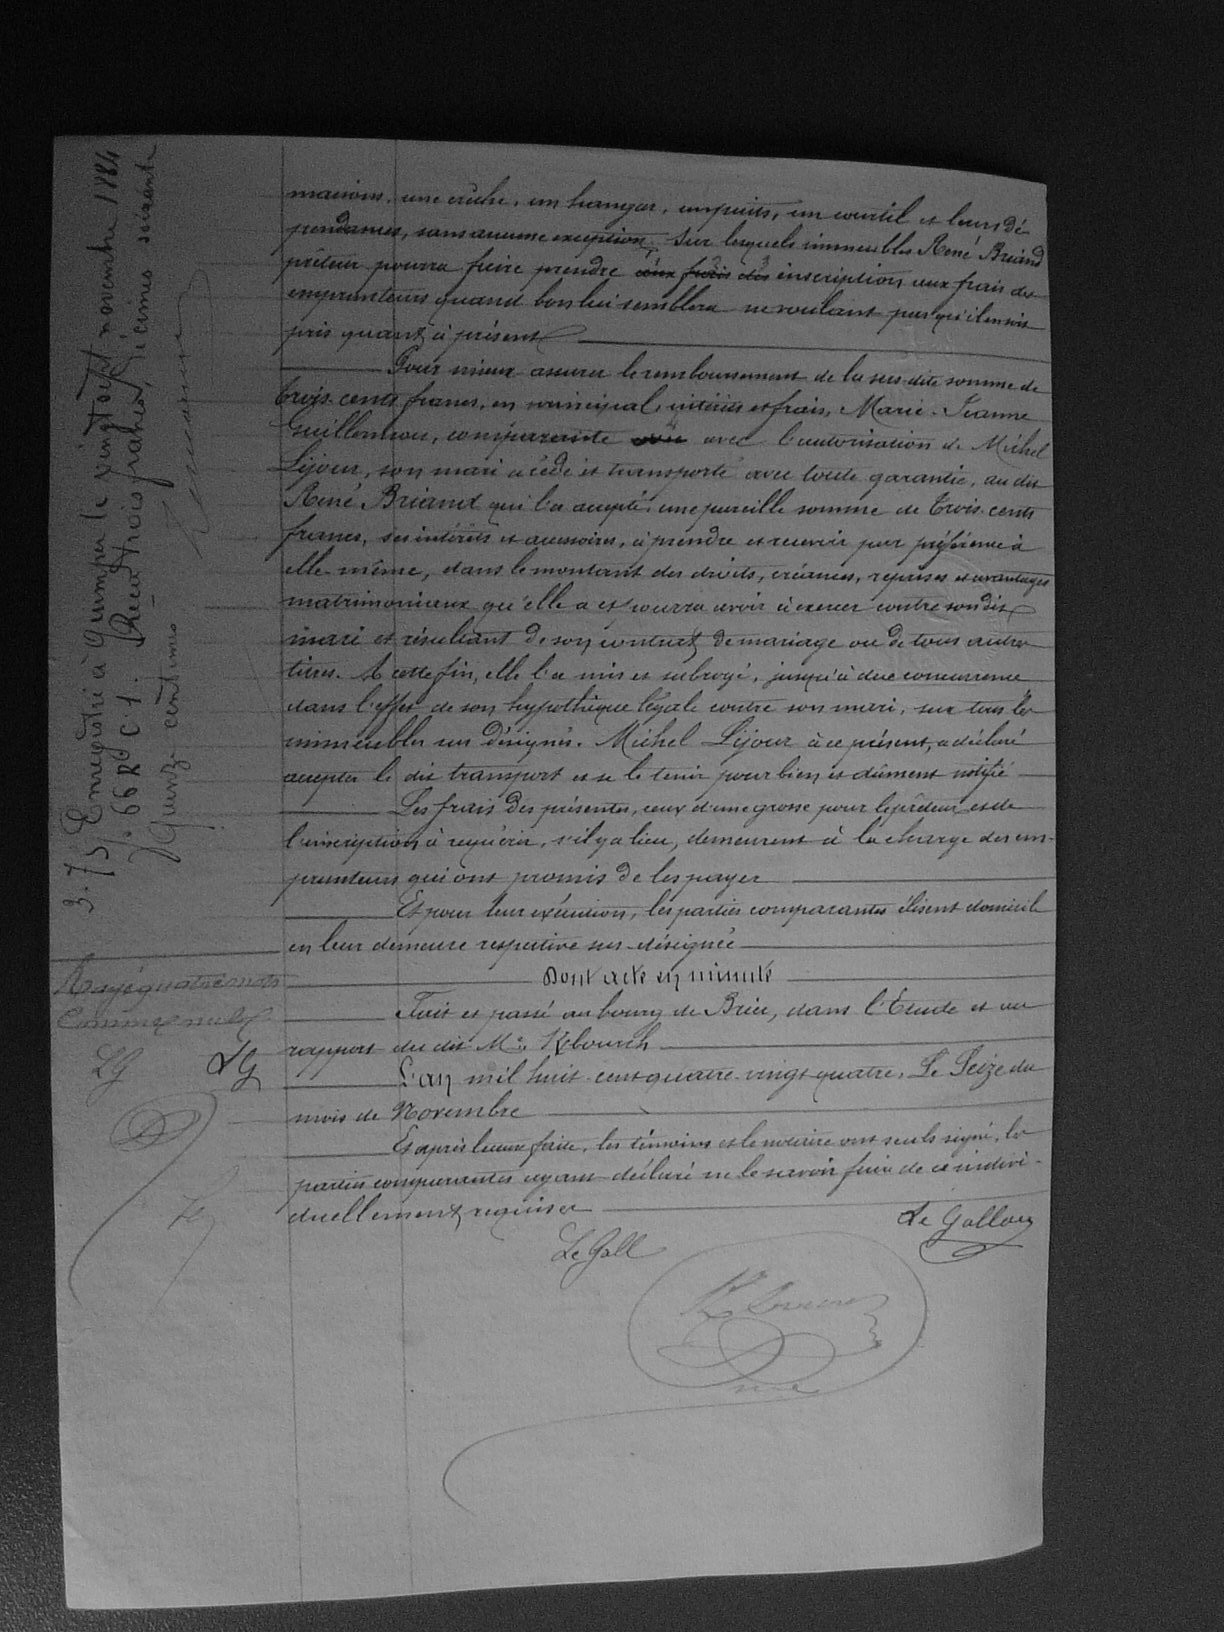 maisons, une crèche, un hangar, un puits, un courtil et leurs dé
pendances, sans aucune exception, Sur lesquels immeubles René Briand
prêteur pourra faire prendre aux frais des inscription aux frais des
emprunteurs quand bon lui semblera ne voulant pas qu'il en soit
pris quant à présent
Pour mieux assurer le remboursement de la sus dite somme de
trois cents francs, en principal, intérêts et frais, Marie-Jeanne
Guillermou, comparante avec l'autorisation de Michel
Lijour, son mari a cédé et transporté avec toute garantie, au dit
René Briand qui l'a accepté, une pareille somme de trois cents
francs, ses intérêts et accessoires, à prendre et recevoir par préférence à
elle-même, dans le montant des droits, créances, reprises et avantages
matrimoniaux qu'elle a et pourra avoir à exercer contre son dit
mari et résultant de son contrat de mariage ou de tous autres
titres. A cette fin, elle l'a mis et subrogé, jusqu'à due concurrence
dans l'effet de son hypothèque légale contre son mari, sur tous les
immeubles sus désignés. Michel Lijour à ce présent, a déclaré
accepter le dit transport et se le tenir pour bien et dûment notifié
Les frais des présentes, ceux d'une grosse pour le prêteur et de
l'inscription à requérir, s'il y a lieu, demeurent à la charge des em-
prunteurs qui ont promis de les payer
Et pour leur exécution, les parties comparantes élisent domicile
en leur demeure respective sus-désignée
Dont acte en minute
Fait et passé au bourg de Briec, dans l'Etude et au
rapport du dit Me Kbourch
L'an mil huit-cent-quatre-vingt quatre, Le Seize du
mois de Novembre
Et après lecture faite, les témoins et le notaire ont seuls signé, les
parties comparantes ayant déclaré ne le savoir faire de ce indivi-
duellement requises
Le Gall
Le Gallou
3.75 Enregistré à Quimper le vingt sept novembre 1884
fo 66 Ro C 1. Reçu trois francs, décimes soixante
Quinze centimes
Rayé quatre mots
comme nuls
LG LG